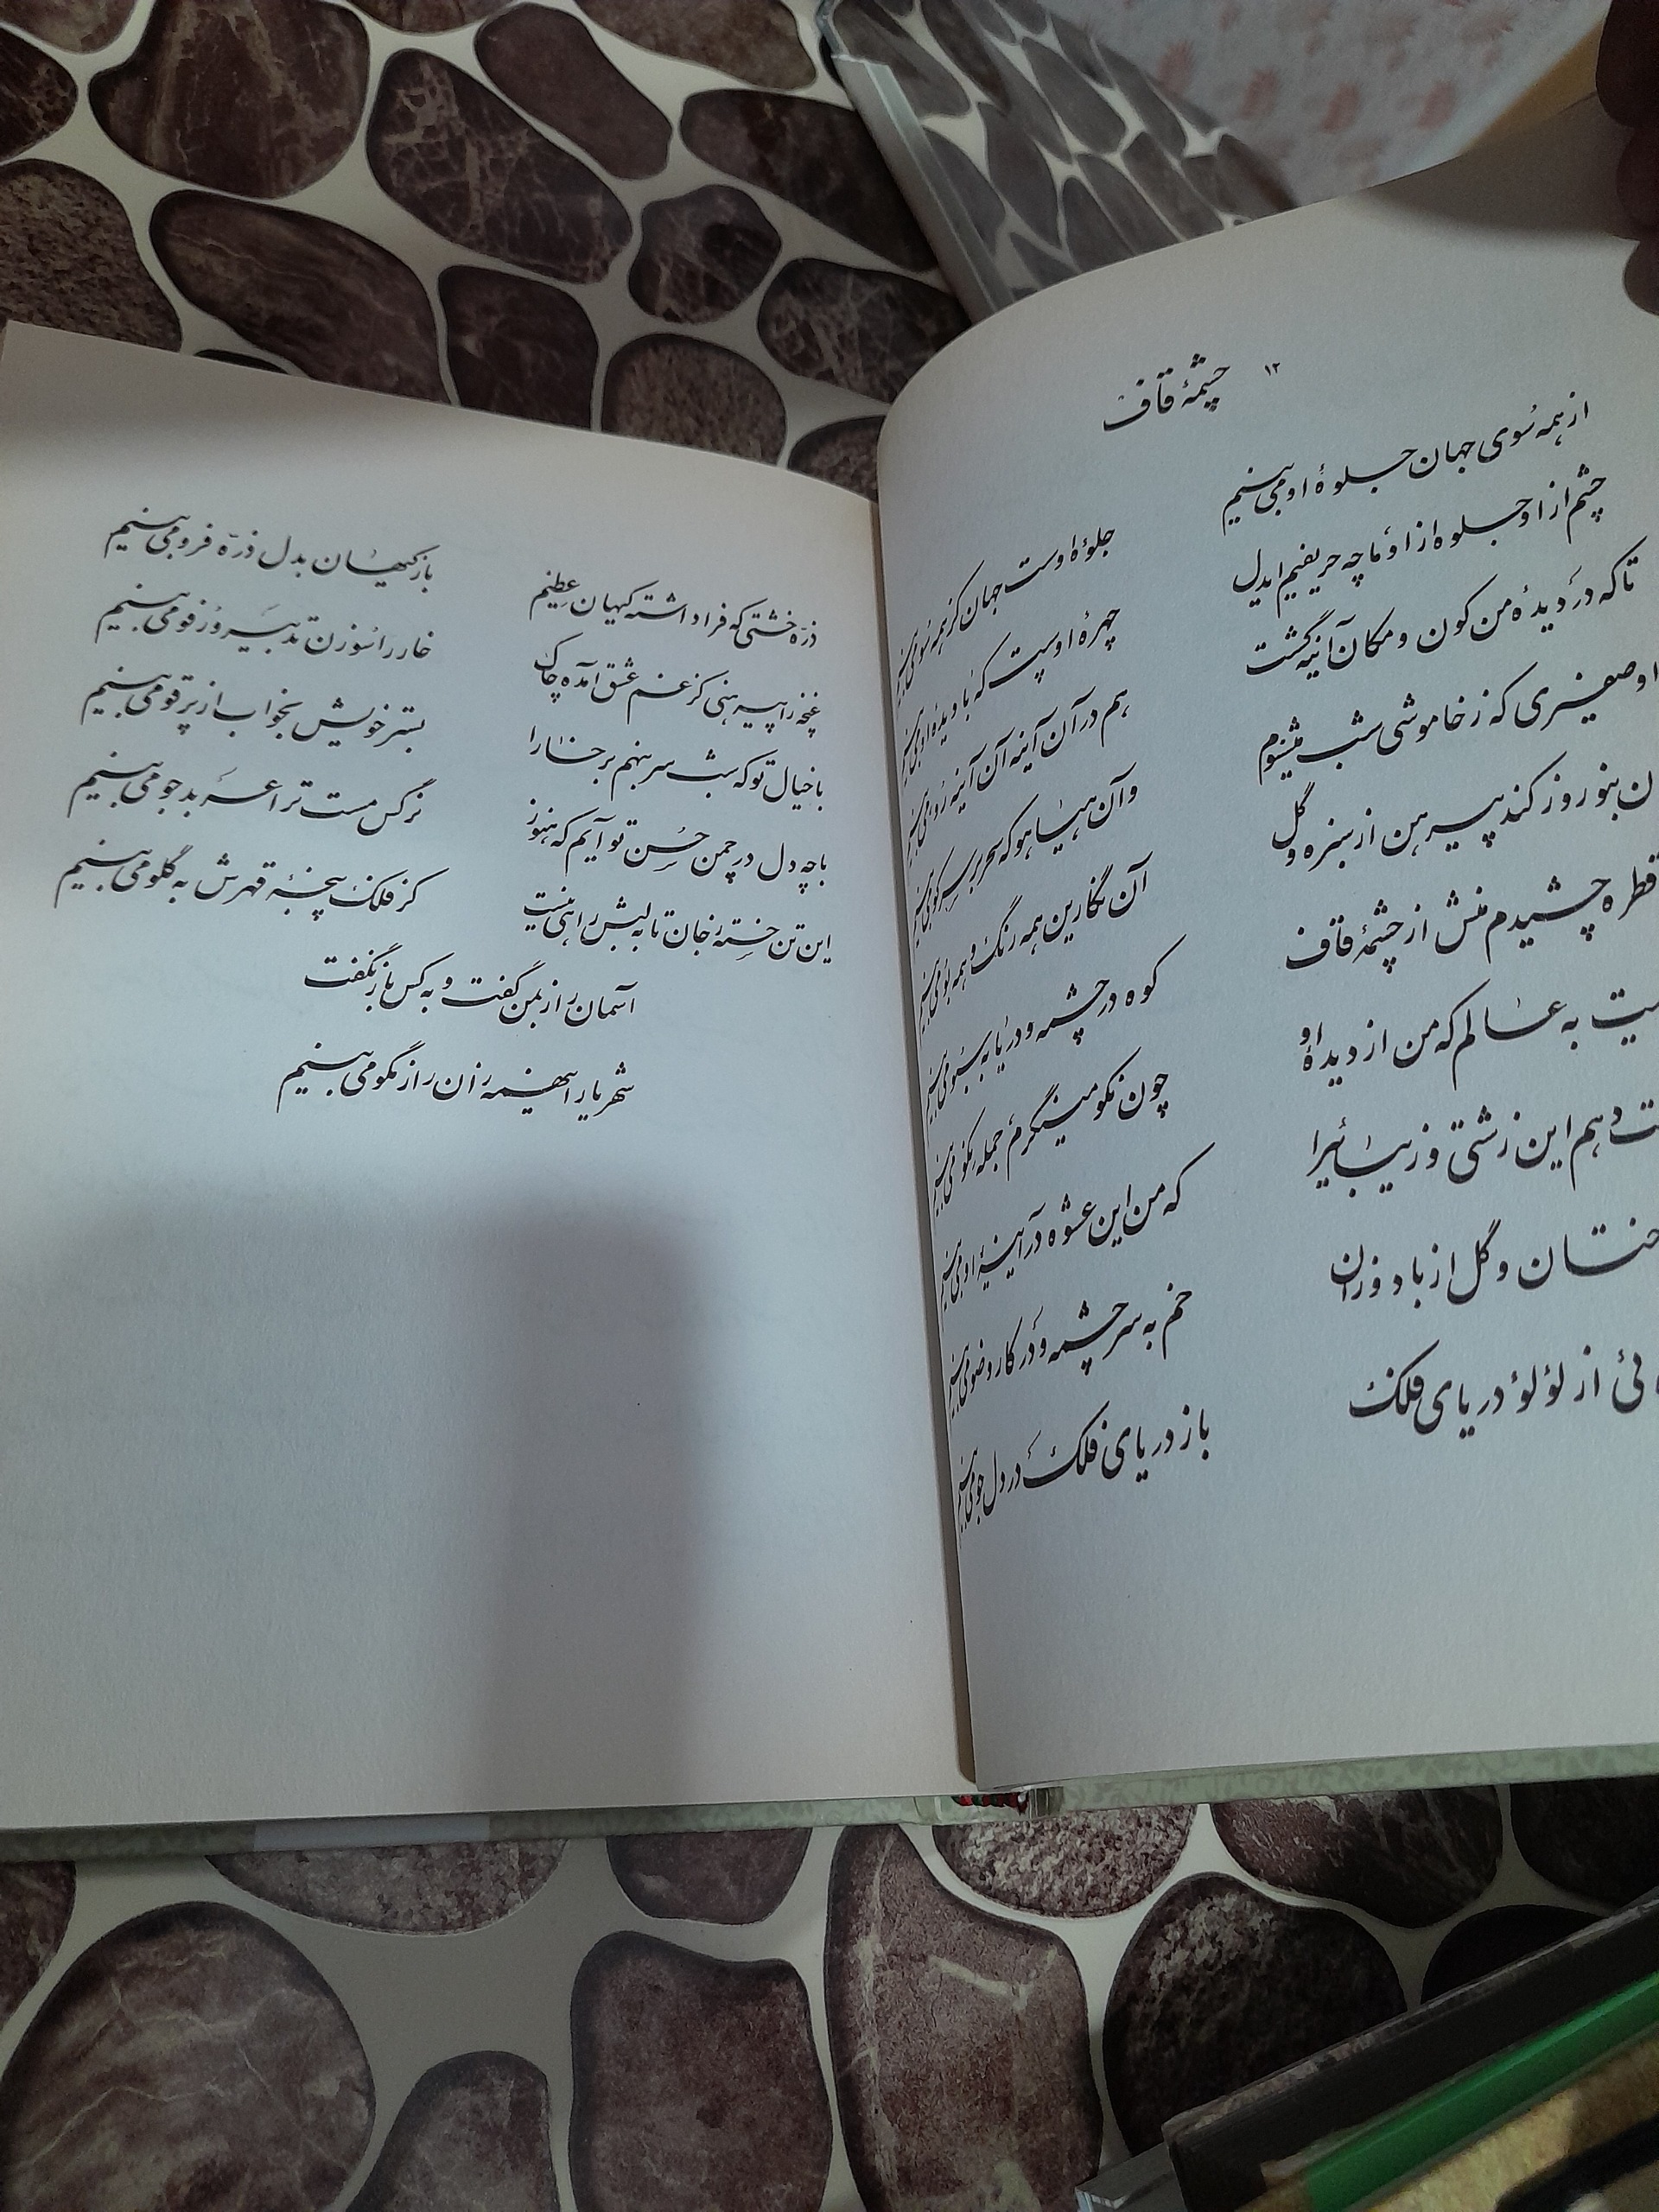 ۱۲
چشمهٔ قاف
از همه سوی جهان جلوهٔ او می‌بینم
جلوهٔ اوست جهان کز همه سو می‌بینم
چشم از او جلوه از او ما چه حریفیم ایدل
چهرهٔ اوست که با دیدهٔ او می‌بینم
تا که در دیدهٔ من کون و مکان آئینه گشت
هم در آن آینه آن آینه رو می‌بینم
او صفیری که ز خاموشی شب میشنوم
و آن هیاهو که سحر بر سر کو می‌بینم
بنوروز کند پیرهن از سبزه و گل
آن نگارین همه رنگ و همه بو می‌بینم
قطره چشیدم منش از چشمهٔ قاف
کوه در چشمه و دریا به سبو می‌بینم
به عالم که من از دیدهٔ او
چون نکو مینگرم جمله نکو می‌بینم
دهم این زشتی و زیبائیرا
که من این عشوه در آئینهٔ او می‌بینم
و گل از باد وزان
خم به سر چشمه و در کار وضو می‌بینم
از لؤلؤ دریای فلک
باز دریای فلک در دل جو می‌بینم
ذرّه خشتی که فرا داشته کیهان عظیم
باز کیهان بدل ذرّه فرو می‌بینم
غنچه را پیرهنی کز غم عشق آمده چاک
خار را سوزن تدبیر و رفو می‌بینم
با خیال تو که شب سر بنهم بر خارا
بستر خویش بخواب از پر قو می‌بینم
با چه دل در چمن حُسن تو آیم که هنوز
نرگس مست ترا عربده‌جو می‌بینم
این تن خسته ز جان تا به لبش راهی نیست
کز فلک پنجهٔ قهرش به گلو می‌بینم
آسمان راز بمن گفت و به کس باز نگفت
شهریار اینهمه زان راز نگو می‌بینم